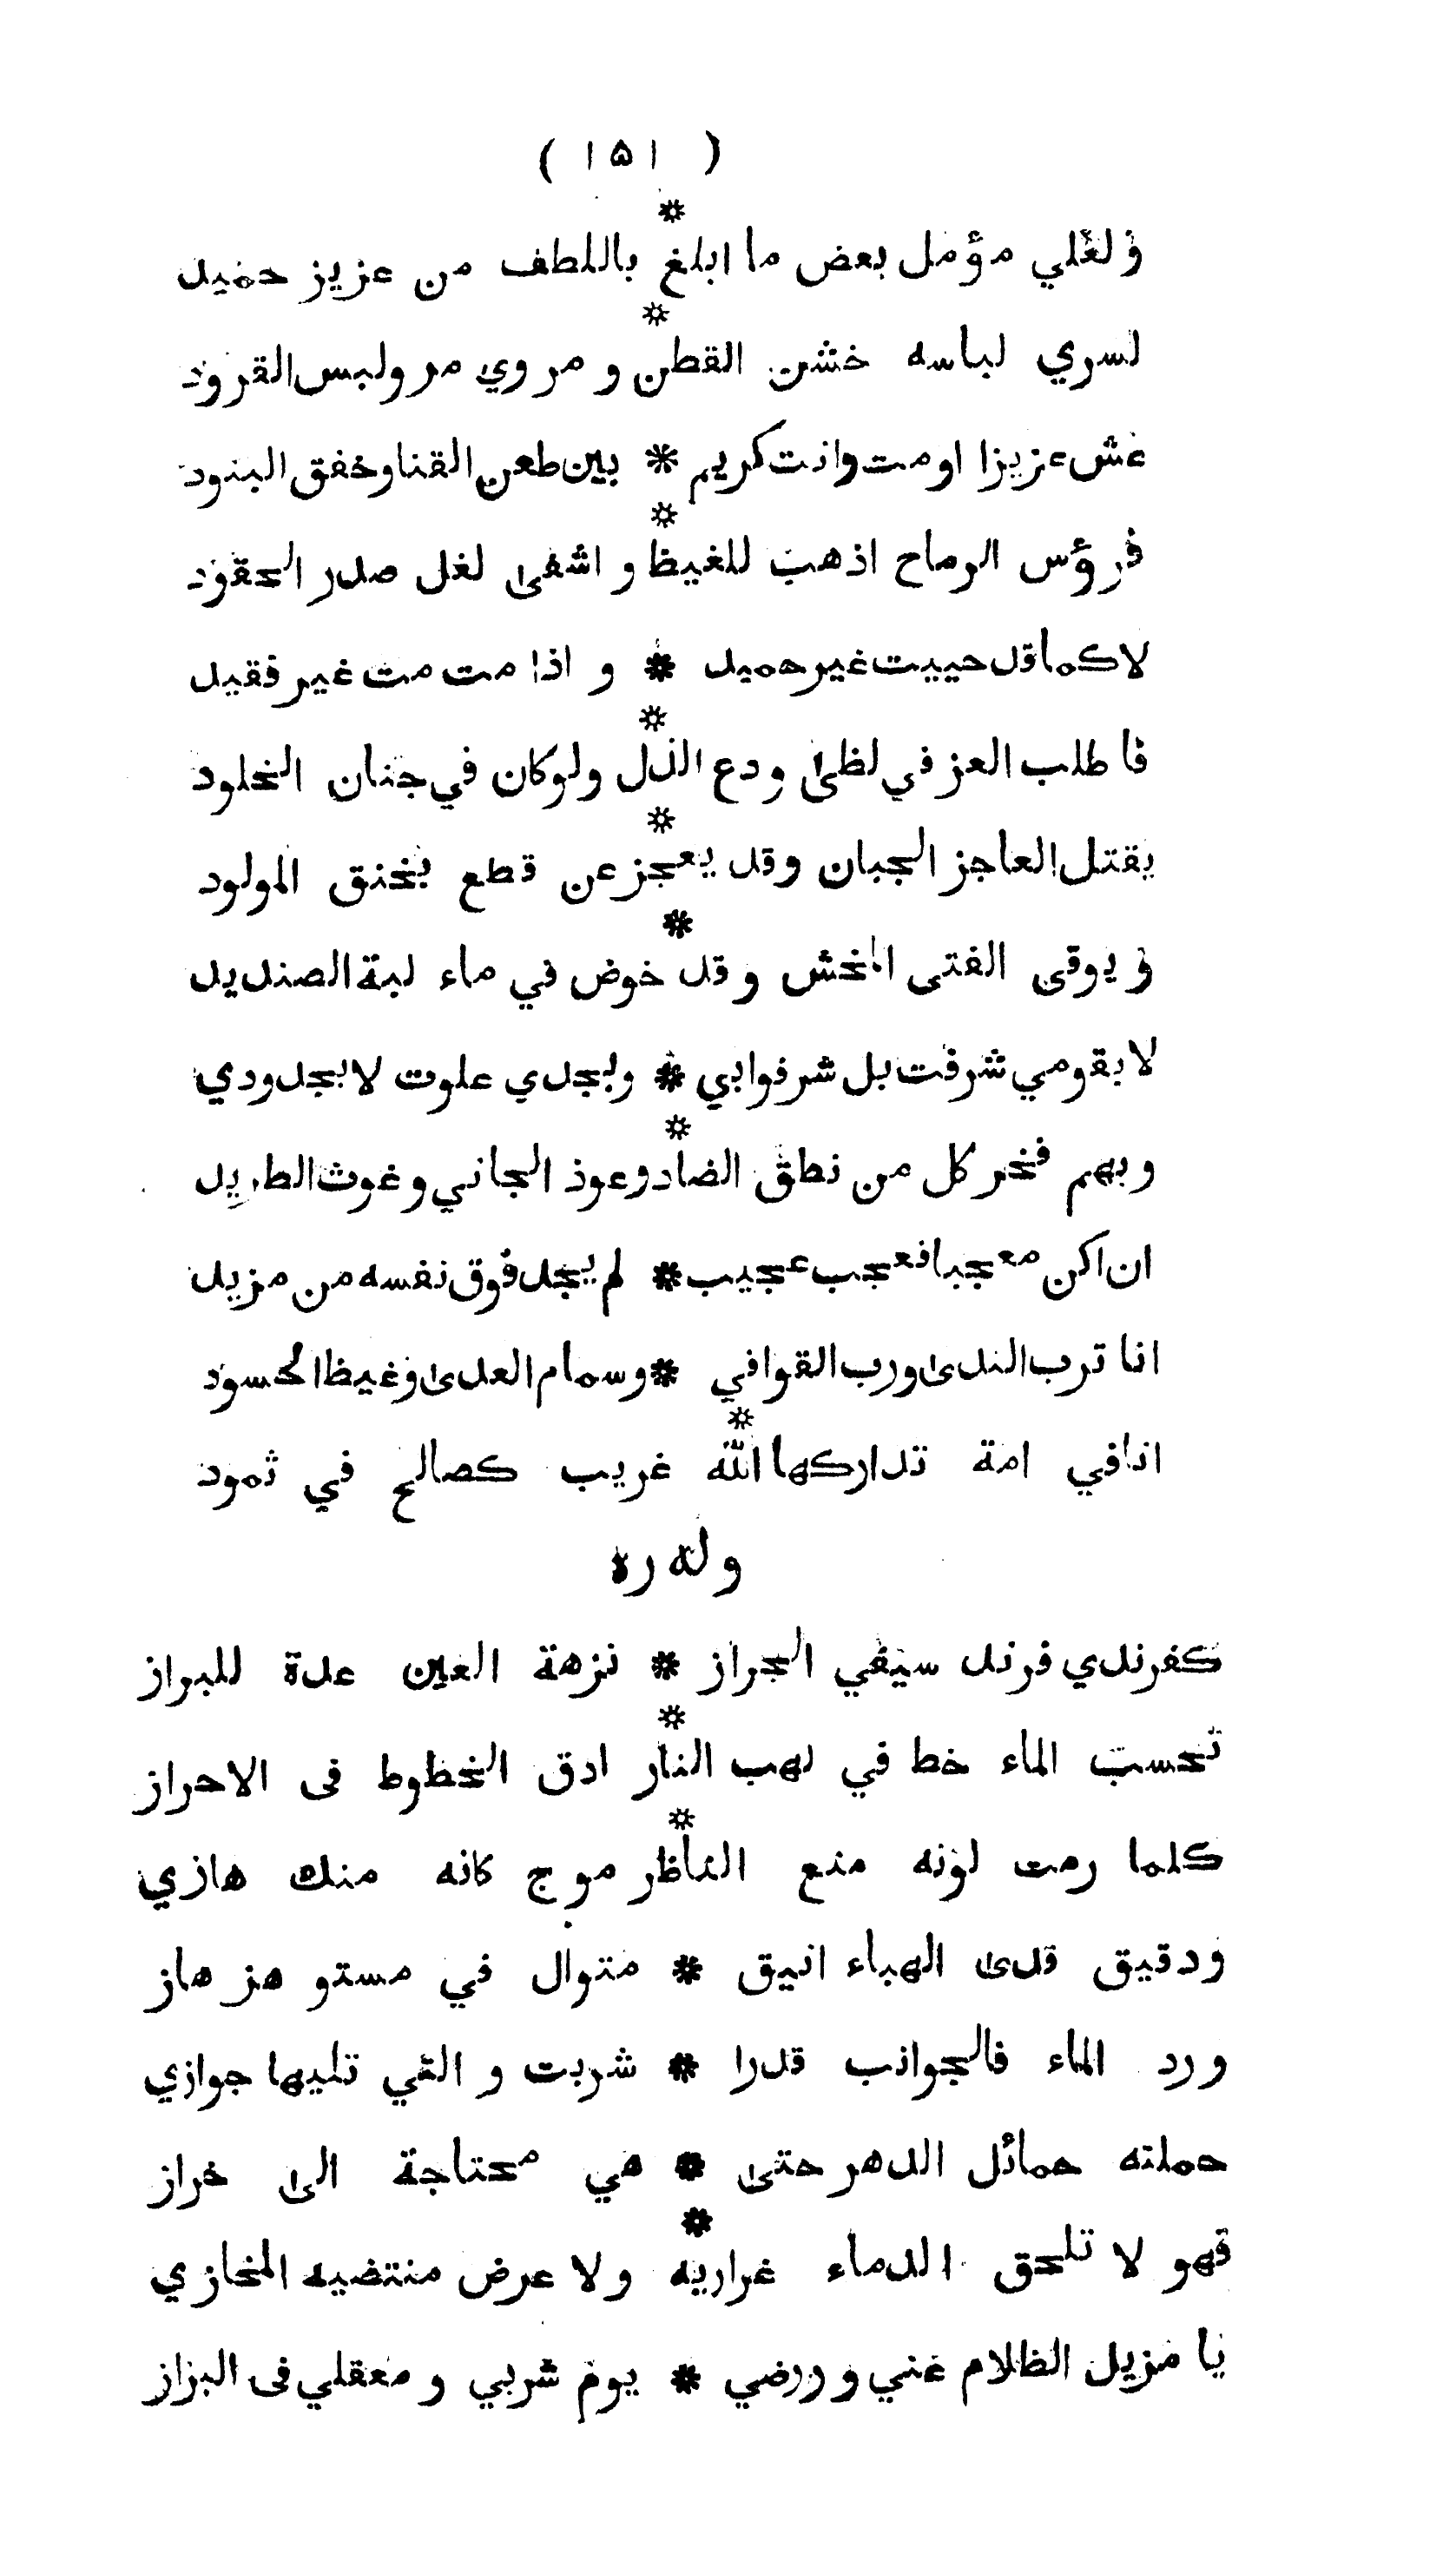 ( ١٥١ )
ولعلي مؤمل بعض ما ابلغ * باللطف من عزيز حميد
لسري لباسه خشن القطن * و مروي مرو لبس القرود
عش عزيزا او مت وانت كريم * بين طعن القنا وخفق البنود
فرؤس الرماح اذهب للغيظ * و اشفى لغل صدر الحقود
لا كما قد حييت غير حميد * و اذا مت مت غير فقيد
فاطلب العز في لظى ودع الذل * ولو كان في جنان الخلود
يقتل العاجز الجبان وقد يعجز * عن قطع بخنق المولود
ويوقى الفتى المخش وقد * خوض في ماء لبة الصنديد
لا بقومي شرفت بل شرفوا بي * وبجدي علوت لا بجدودي
وبهم فخر كل من نطق الضاد * وعوذ الجاني وغوث الطريد
ان اكن معجبا فعجب عجيب * لم يجد فوق نفسه من مزيد
انا ترب الندى ورب القوافي * وسمام العدى وغيظ الحسود
انا في امة تداركها الله * غريب كصالح في ثمود
وله ره
كفرندي فرند سيفي الجراز * نزهة العين عدة للبراز
تحسب الماء خط في لهب النار * ادق الخطوط فى الاحراز
كلما رمت لونه منع الناظر * موج كانه منك هازي
ودقيق قدى الهباء انيق * متوال في مستو هزهاز
ورد الماء فالجوانب قدرا * شربت و التي تليها جوازي
حملته حمائل الدهر حتى * هي محتاجة الى خراز
فهو لا تلحق الدماء غراريه * ولا عرض منتضيه المخازي
يا مزيل الظلام عني و روضي * يوم شربي و معقلي فى البزاز